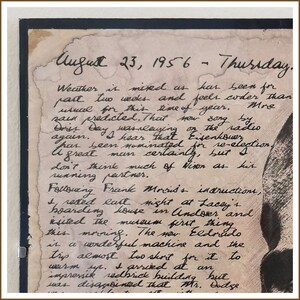 August 23, 1956 - Thursday.
Weather is mixed as has been for
past two weeks and feels cooler than
usual for this time of year. Mrs
said predicted, That new song by
Doris Day was playing on the radio
again. I hear that Eisenhower
has been nominated for re-election.
A great man certainly, but I
don't think much of Nixon as his
running partner.
Following Frank instructions,
I rested last night at Lacey's
boarding house in Andover and
visited the museum first thing
this morning. The new Eldorado
is a wonderful machine and the
trip almost too short for it to
warm up. I arrived at an
impressive redbrick building but
was disappointed that Mr. Dodge